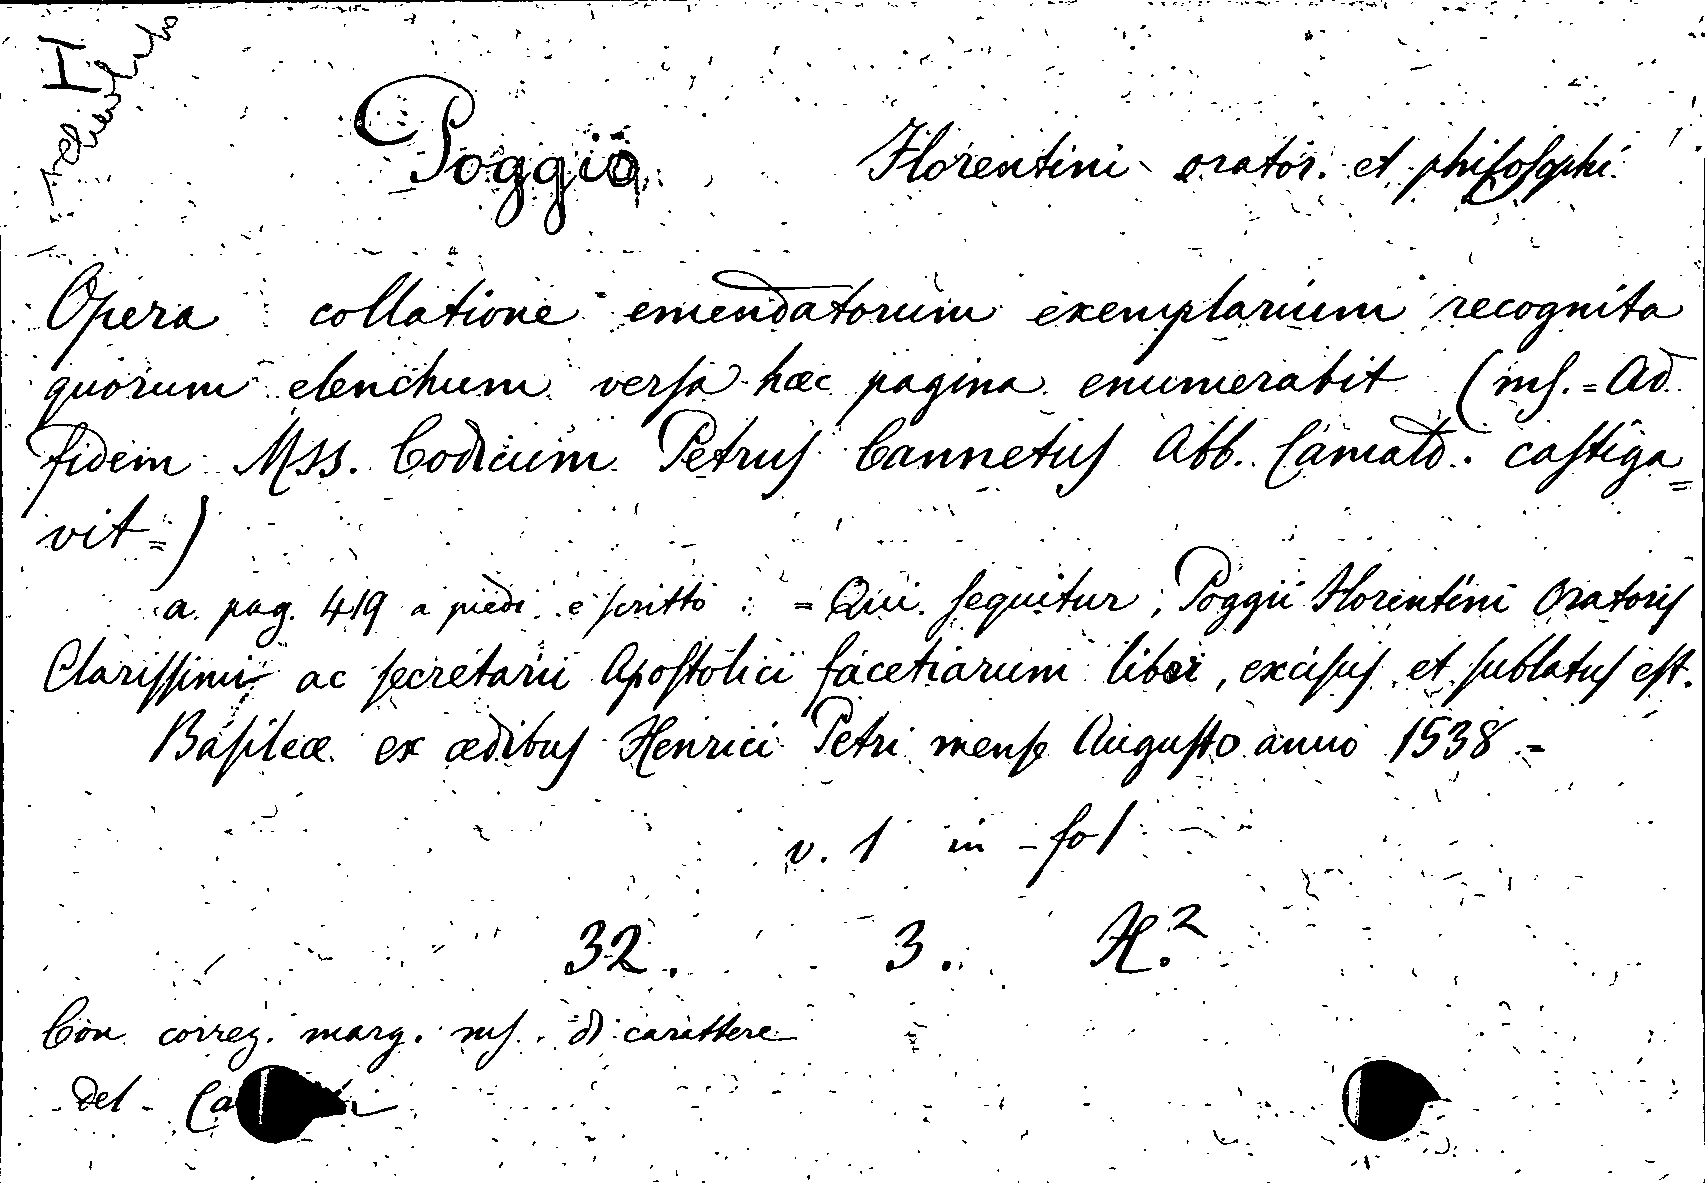 H
Poggio Florentini orator. et philosophi
Opera collatione emendatorum exemplarium recognita
quorum elenchum versa hæc pagina enumerabit (ms. = Ad
fidem Mss. Codicum Petrus Cannetus Abb. Camald. castiga=
vit =)
a pag. 419 a piedi è scritto : = Qui sequitur, Poggii Florentini Oratoris
Clarissimi ac secretarii Apostolici facetiarum liber, excisus et sublatus est.
Basileæ ex ædibus Henrici Petri mense Augusto anno 1538 =
v. 1 in fol
32. 3. H.²
Con correz. marg. ms. di carattere
del